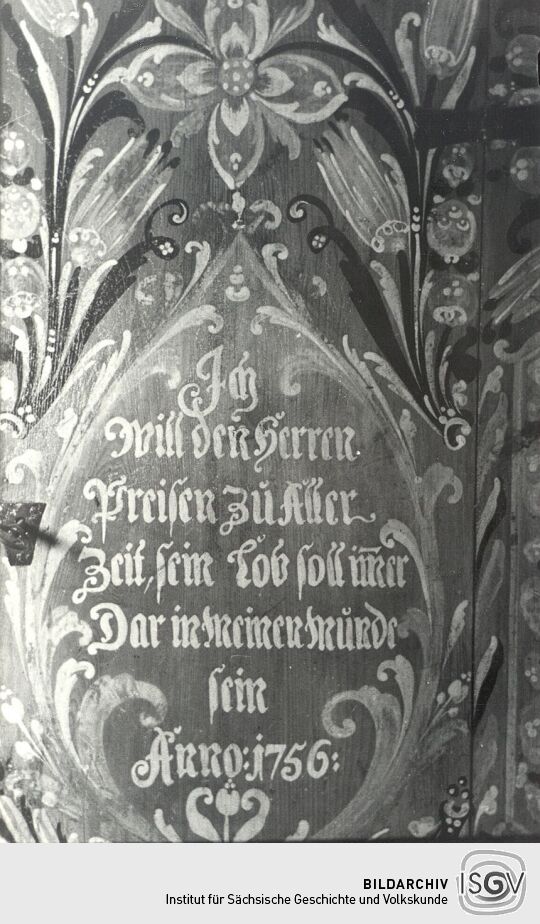 Ich
will den Herren
Preisen zu Aller
Zeit, sein Lob soll im̅er
Dar in meinen munde
sein
Anno: 1756:
BILDARCHIV
Institut für Sächsische Geschichte und Volkskunde
ISGV